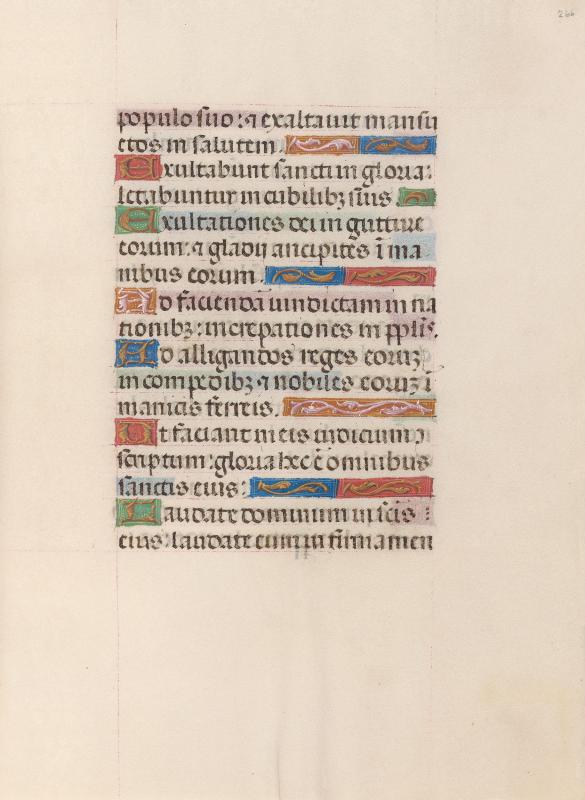 266
populo suo: ⁊ exaltavit mansu
etos in salutem.
Exultabunt sancti in gloria:
letabuntur in cubilibꝫ suis.
Exultationes dei in gutture
eorum: ⁊ gladij ancipites ī ma
nibus eorum.
Ad faciendā vindictam in na
tionibꝫ: increpationes in pplīs.
Ad alligandos reges eoruꝫ
in compedibꝫ ⁊ nobiles eoruꝫ ī
manicis ferreis.
Ut faciant in eis iudicium ↄ
scriptum: gloria hec ē omnibus
sanctis eius:
Laudate dominum in scīs
eius: laudate eum in firmamen